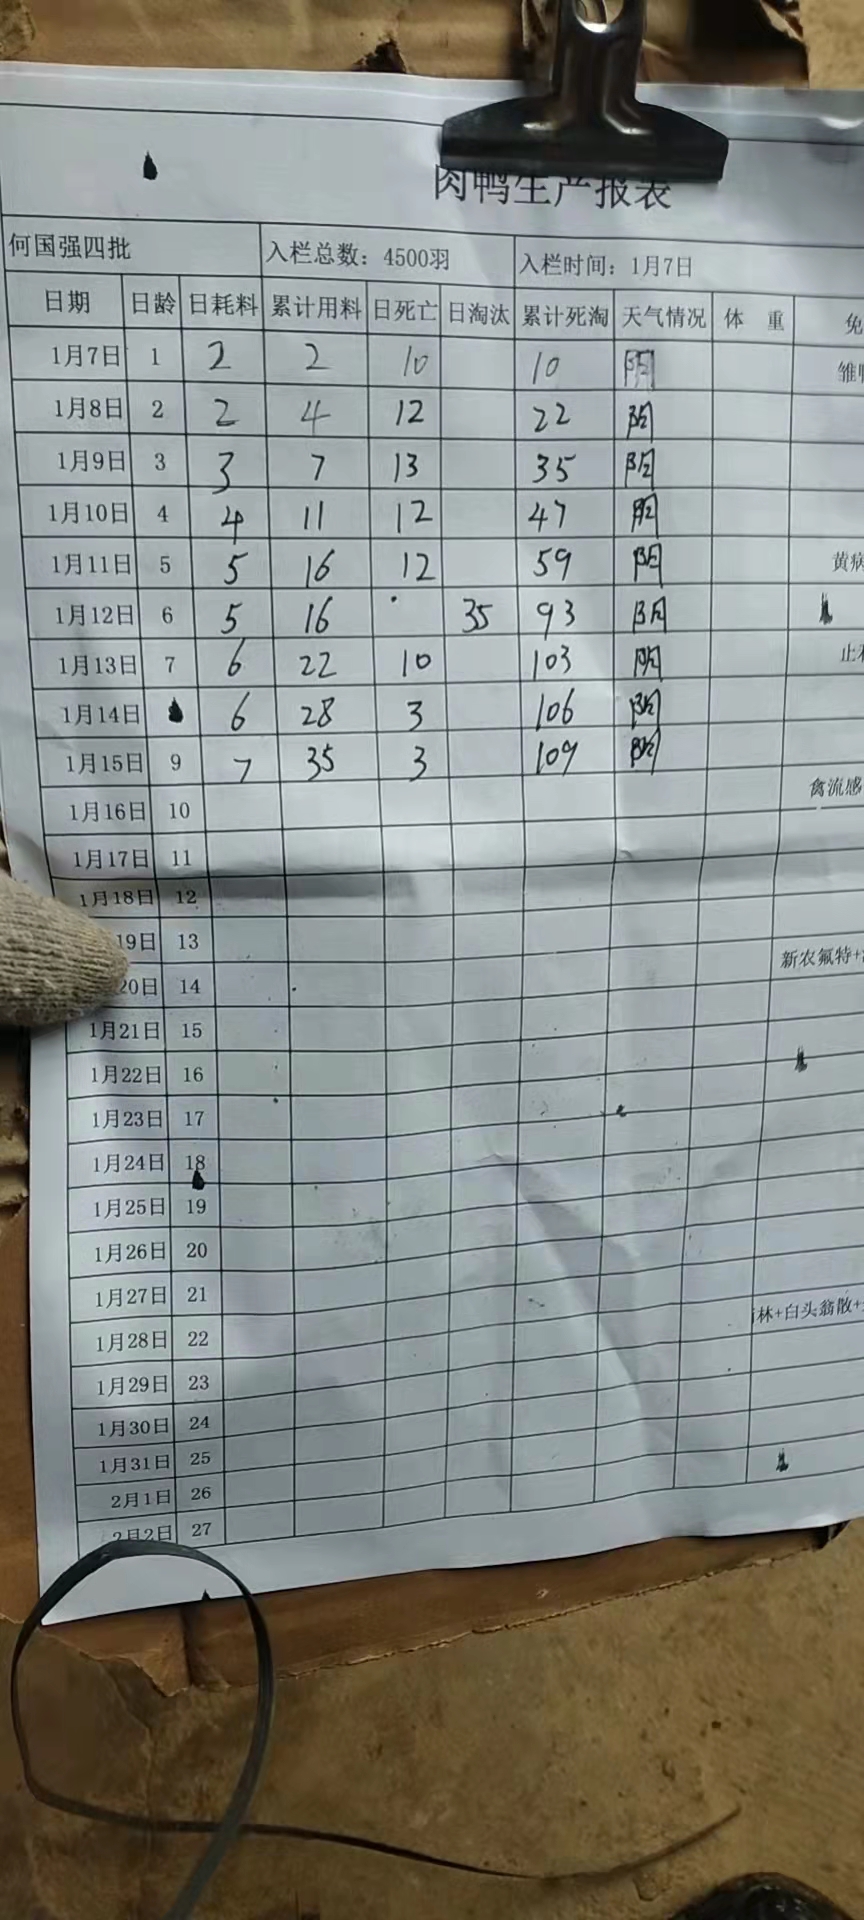 肉鸭生产报表
何国强四批 入栏总数：4500羽 入栏时间：1月7日
日期 日龄 日耗料 累计用料 日死亡 日淘汰 累计死淘 天气情况 体 重 免
1月7日 1 2 2 10 10 阴 雏
1月8日 2 2 4 12 22 阴
1月9日 3 3 7 13 35 阴
1月10日 4 4 11 12 47 阴
1月11日 5 5 16 12 59 阴 黄病
1月12日 6 5 16 35 93 阴
1月13日 7 6 22 10 103 阴 止
1月14日 6 28 3 106 阴
1月15日 9 7 35 3 109 阴
1月16日 10 禽流感
1月17日 11
1月18日 12
19日 13
20日 14 新农氟特+
1月21日 15
1月22日 16
1月23日 17
1月24日 18
1月25日 19
1月26日 20
1月27日 21
1月28日 22 林+白头翁散+
1月29日 23
1月30日 24
1月31日 25
2月1日 26
2月2日 27